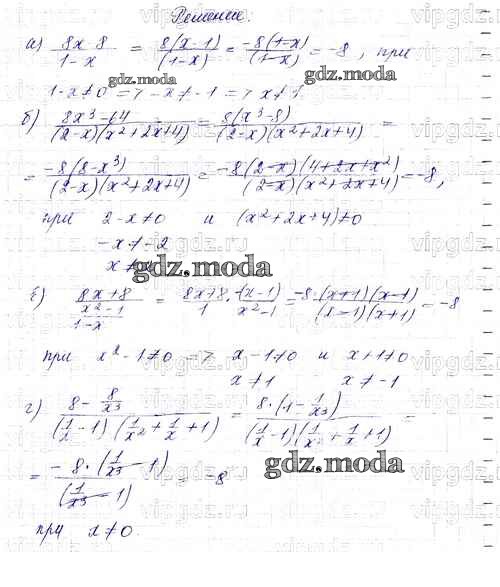 Решение.
а) 8x-8 / 1-x = 8(x-1) / (1-x) = -8(1-x) / (1-x) = -8, при
1-x≠0 => -x≠-1 => x≠1.
gdz.moda
б) 8x³-64 / (2-x)(x²+2x+4) = 8(x³-8) / (2-x)(x²+2x+4) =
= -8(8-x³) / (2-x)(x²+2x+4) = -8(2-x)(4+2x+x²) / (2-x)(x²+2x+4) = -8,
при 2-x≠0 и (x²+2x+4)≠0
-x≠-2
x≠
gdz.moda
8x+8 / (x²-1 / 1-x) = 8x+8 / 1 · -(x-1) / x²-1 = -8·(x+1)(x-1) / (x-1)(x+1) = -8
при x²-1≠0 => x-1≠0 и x+1≠0
x≠1 x≠-1
г) 8 - 8/x³ / (1/x - 1)(1/x² + 1/x + 1) = 8·(1 - 1/x³) / (1/x - 1)(1/x² + 1/x + 1) =
= -8·(1/x³ - 1) / (1/x³ - 1) = -8
gdz.moda
при x≠0
vipgdz.ru